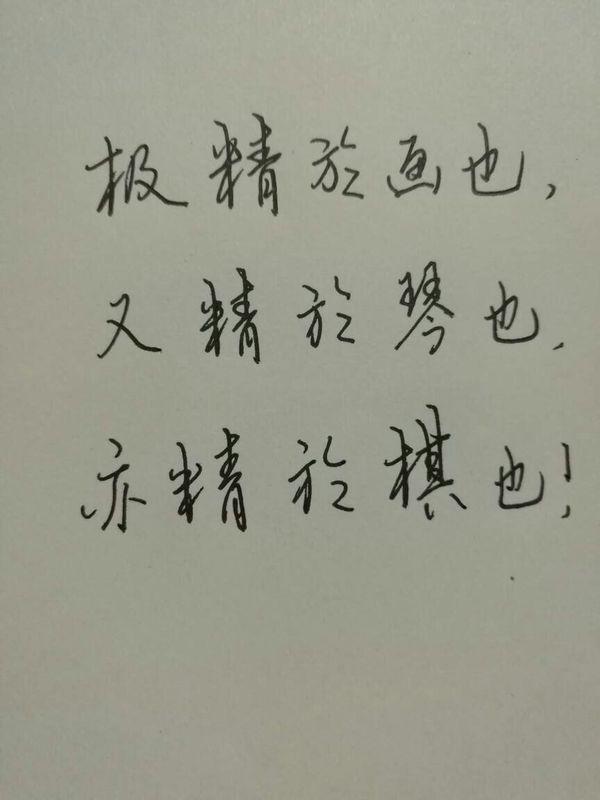 极精於画也，
又精於琴也．
亦精於棋也！